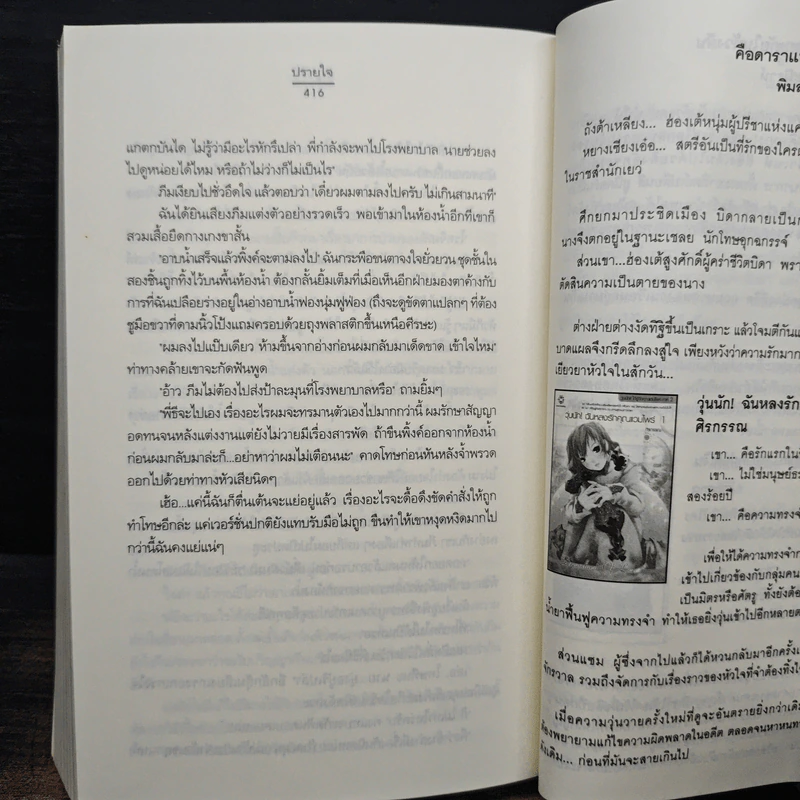 ปรายใจ
416
แกตกบันได ไม่รู้ว่ามีอะไรหักรึเปล่า พี่กำลังจะพาไปโรงพยาบาล นายช่วยลง
ไปดูหน่อยได้ไหม หรือถ้าไม่ว่างก็ไม่เป็นไร"
ภีมเงียบไปชั่วอึดใจ แล้วตอบว่า "เดี๋ยวผมตามลงไปครับ ไม่เกินสามนาที"
ฉันได้ยินเสียงภีมแต่งตัวอย่างรวดเร็ว พอเข้ามาในห้องน้ำอีกทีเขาก็
สวมเสื้อยืดกางเกงขาสั้น
"อาบน้ำเสร็จแล้วพิ้งค์จะตามลงไป" ฉันกระพือขนตาจงใจยั่วยวน ชุดชั้นใน
สองชิ้นถูกทิ้งไว้บนพื้นห้องน้ำ ต้องกลั้นยิ้มเต็มที่เมื่อเห็นอีกฝ่ายมองตาค้างกับ
การที่ฉันเปลือยร่างอยู่ในอ่างอาบน้ำฟองนุ่มฟูฟ่อง (ถึงจะดูขัดตาแปลกๆ ที่ต้อง
ชูมือขวาที่ดามนิ้วโป้งแถมครอบด้วยถุงพลาสติกขึ้นเหนือศีรษะ)
"ผมลงไปแป๊บเดียว ห้ามขึ้นจากอ่างก่อนผมกลับมาเด็ดขาด เข้าใจไหม"
ท่าทางคล้ายเขาจะกัดฟันพูด
"อ้าว ภีมไม่ต้องไปส่งป้าละมุนที่โรงพยาบาลหรือ" ถามยิ้มๆ
"พี่ธีจะไปเอง เรื่องอะไรผมจะทรมานตัวเองไปมากกว่านี้ ผมรักษาสัญญา
อดทนจนหลังแต่งงานแต่ยังไม่วายมีเรื่องสารพัด ถ้าขืนพิ้งค์ออกจากห้องน้ำ
ก่อนผมกลับมาล่ะก็...อย่าหาว่าผมไม่เตือนนะ" คาดโทษก่อนหันหลังจ้ำพรวด
ออกไปด้วยท่าทางหัวเสียนิดๆ
เฮ้อ...แค่นี้ฉันก็ตื่นเต้นจะแย่อยู่แล้ว เรื่องอะไรจะดื้อดึงขัดคำสั่งให้ถูก
ทำโทษอีกล่ะ แค่เวอร์ชั่นปกติยังแทบรับมือไม่ถูก ขืนทำให้เขาหงุดหงิดมากไป
กว่านี้ฉันคงแย่แน่ๆ
คือดาราแ
พิม
ถังต้าเหลียง... ฮ่องเต้หนุ่มผู้ปรีชาแห่งแค
หยางเซียงเอ๋อ... สตรีอันเป็นที่รักของใคร
ในราชสำนักเยว่
ศึกยกมาประชิดเมือง บิดากลายเป็น
นางจึงตกอยู่ในฐานะเชลย นักโทษอุกฉกรรจ์
ส่วนเขา...ฮ่องเต้สูงศักดิ์ผู้คร่าชีวิตบิดา
ตัดสินความเป็นตายของนาง
ต่างฝ่ายต่างงัดทิฐิขึ้นเป็นเกราะ แล้วโจมตีกัน
บาดแผลจึงกรีดลึกลงสู่ใจ เพียงหวังว่าความรัก
เยียวยาหัวใจในสักวัน...
วุ่นนัก! ฉันหลงรักคุณแวมไพร์ 1
วุ่นนัก! ฉันหลงรัก
ศิรกรรณ
เขา... คือรักแรกใน
เขา... ไม่ใช่มนุษย์
สองร้อยปี
เขา... คือความทรงจำ
เพื่อให้ได้ความทรงจำ
เข้าไปเกี่ยวข้องกับกลุ่มคน
เป็นมิตรหรือศัตรู ทั้งยังต้อง
น้ำยาฟื้นฟูความทรงจำ ทำให้เธอยิ่งวุ่นเข้าไปอีกหลาย
ส่วนแซม ผู้ซึ่งจากไปแล้วก็ได้หวนกลับมาอีกครั้ง
จักรวาล รวมถึงจัดการกับเรื่องราวของหัวใจที่จำต้องทิ้ง
เมื่อความวุ่นวายครั้งใหม่ที่ดูจะอันตรายยิ่งกว่าเดิม
ต้องพยายามแก้ไขความผิดพลาดในอดีต ตลอดจนหาหน
ดังเดิม... ก่อนที่มันจะสายเกินไป